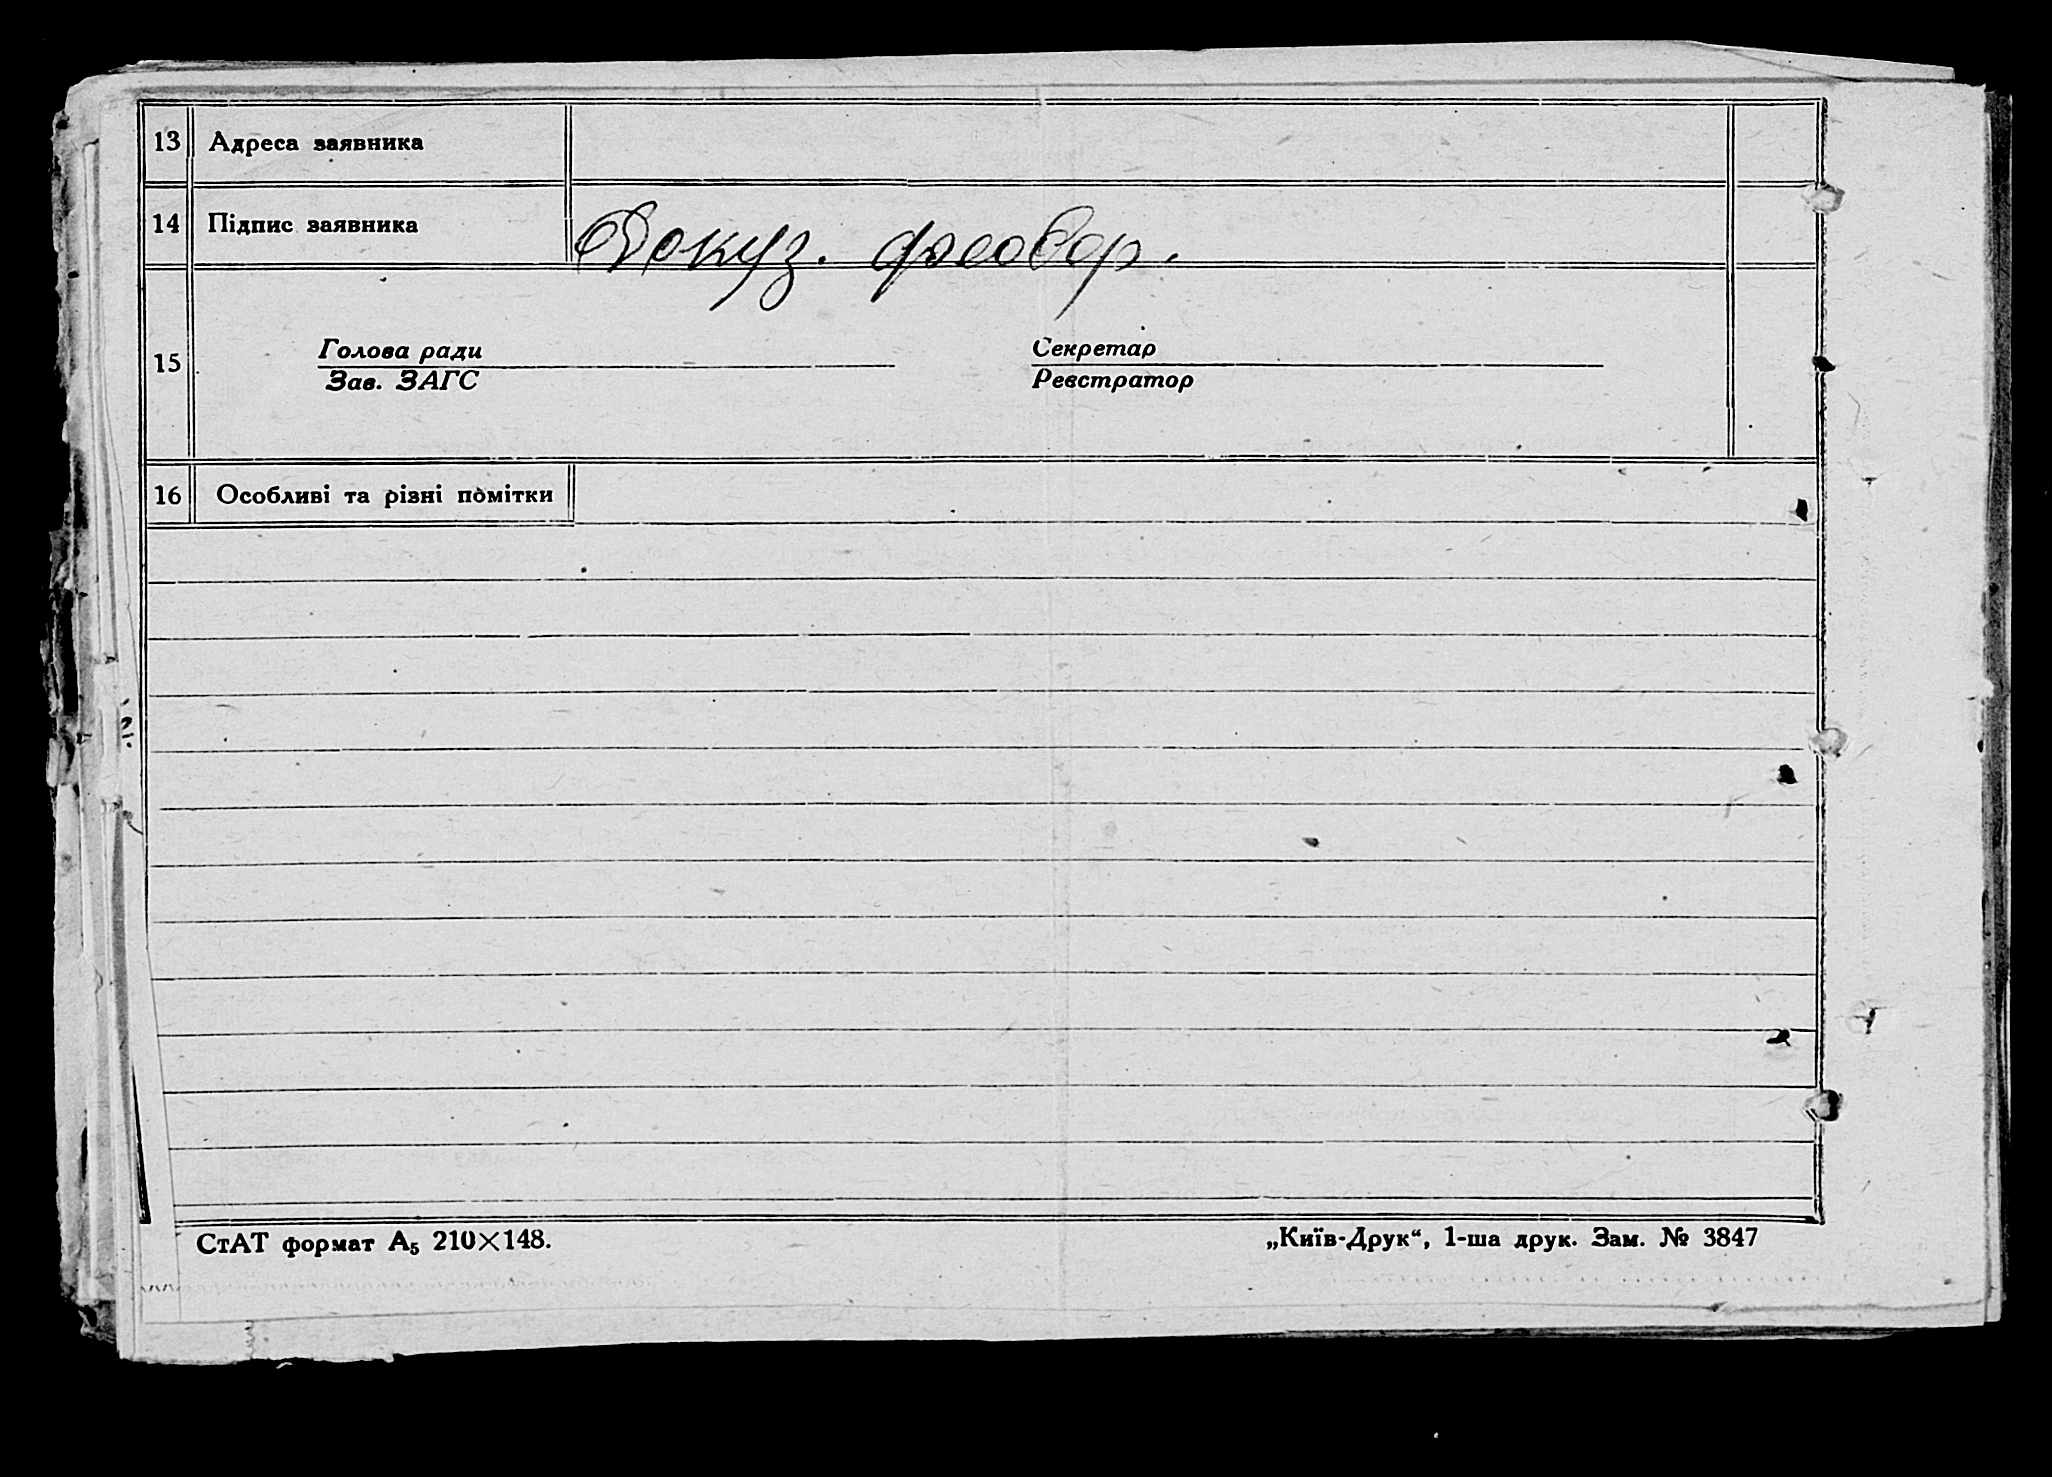 13 Адреса заявника
14 Підпис заявника
15 Голова ради Секретар
Зав. ЗАГС Реєстратор
16 Особливі та різні помітки
СтАТ формат А₅ 210×148. „Київ-Друк“, 1-ша друк. Зам. № 3847